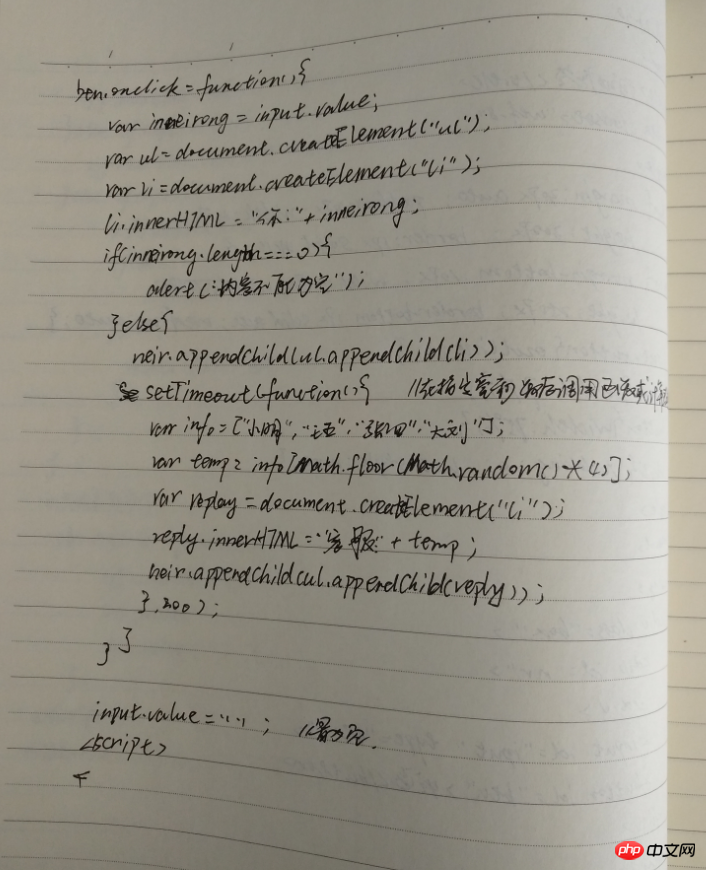 btn.onclick=function(){
var inneirong=input.value;
var ul=document.createElement("ul");
var li=document.createElement("li");
li.innerHTML="你:"+inneirong;
if(inneirong.length===0){
alert("内容不能为空");
}else{
neir.appendChild(ul.appendChild(li));
setTimeout(function(){ //在指定毫秒 后调用函数或
var info=["小明","王五","张四","大刘"];
var temp=info[Math.floor(Math.random()*4)];
var replay=document.createElement("li");
reply.innerHTML="客服:"+temp;
neir.appendChild(ul.appendChild(reply));
},200);
} }
input.value=""; //置为空.
<script>
<
php 中文网